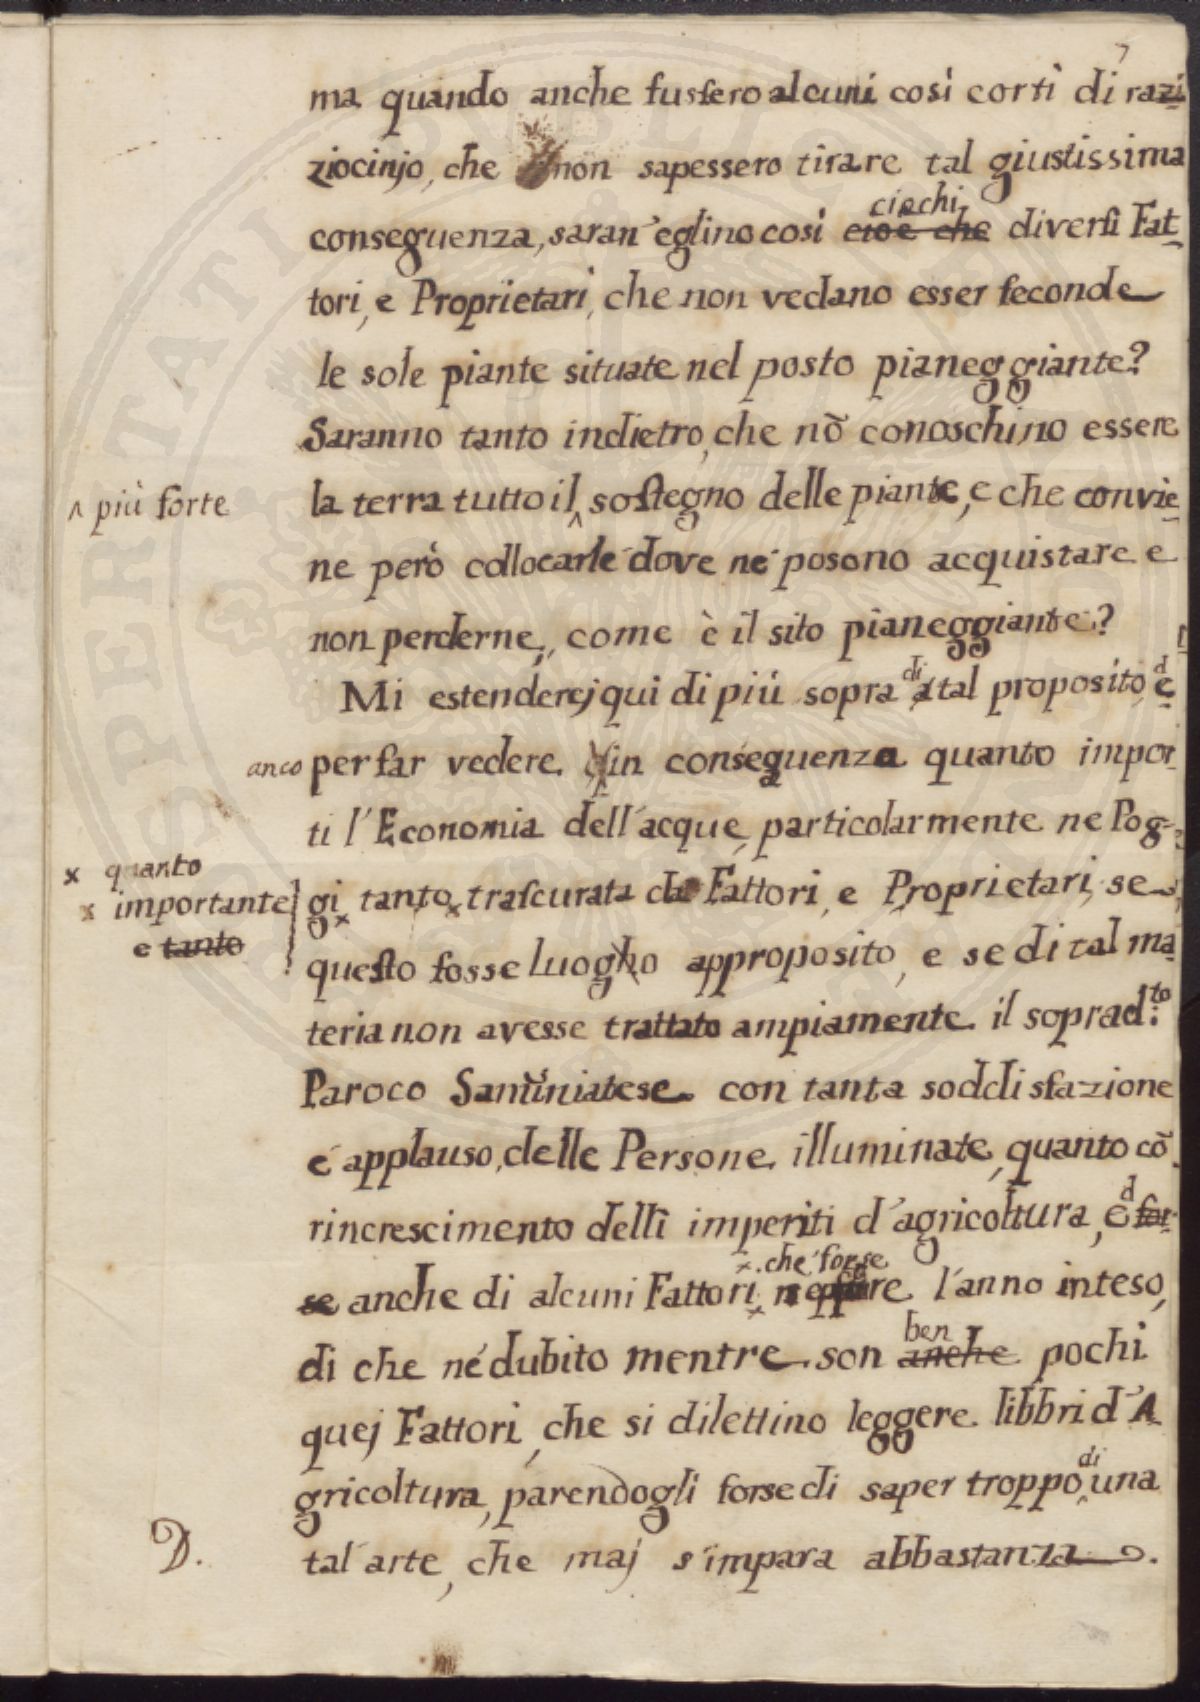 7
ma quando anche fussero alcuni così corti di razi
ziocinjo, che non sapessero tirare tal giustissima
ciechi
conseguenza, saran' eglino così cioè che diversi Fat-
tori, e Proprietari, che non vedano esser feconde
le sole piante situate nel posto pianeggiante?
Saranno tanto indietro, che nõ conoschino essere
^ più forte
la terra tutto il ^ sostegno delle piante, e che convie
ne però collocarle dove ne posono acquistare e
non perderne, come è il sito pianeggiante?
Mi estenderej qui di più sopra di tal proposito, ed
anco per far vedere in conseguenza quanto impor-
ti l'Economia dell'acque, particolarmente ne Pog-
x quanto
x importante
e tanto
gi x tanto x trascurata da Fattori, e Proprietari, se
questo fosse luogho approposito, e se di tal ma
teria non avesse trattato ampiamente il soprad.to
Paroco Saminiatese con tanta soddisfazione
e applauso, delle Persone illuminate, quanto cõ
rincrescimento delli imperiti d'agricoltura, ed for-
x. che forse
se anche di alcuni Fattori x neppure l'anno inteso,
ben
di che ne dubito mentre son anche pochi
quej Fattori, che si dilettino leggere libbri d'A
di
gricoltura, parendogli forse di saper troppo una
tal'arte, che maj s'impara abbastanza.
D.